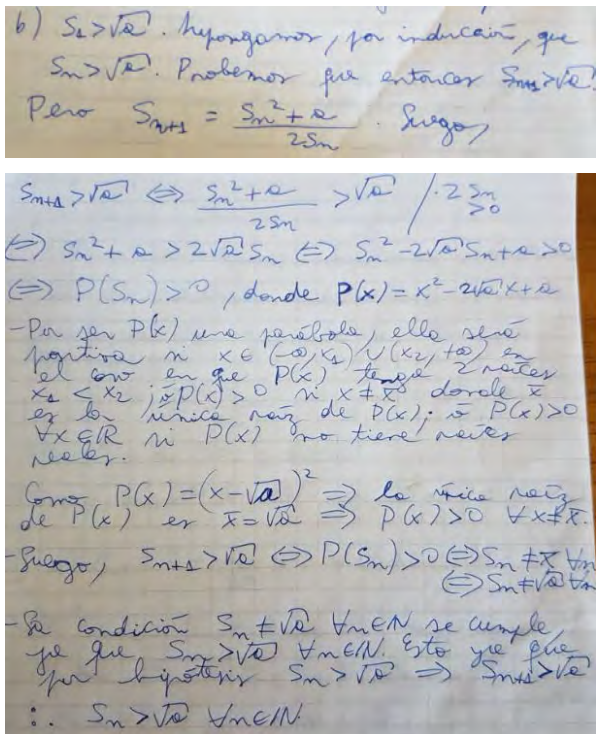 b) S₁ > √a. Supongamos, por inducción, que
Sₙ > √a. Probemos que entonces Sₙ₊₁ > √a.
Pero Sₙ₊₁ = (Sₙ² + a) / 2Sₙ. Luego,
Sₙ₊₁ > √a ⟺ (Sₙ² + a) / 2Sₙ > √a / · 2Sₙ > 0
⟺ Sₙ² + a > 2√a Sₙ ⟺ Sₙ² - 2√a Sₙ + a > 0
⟺ P(Sₙ) > 0, donde P(x) = x² - 2√a x + a
- Por ser P(x) una parábola, ella será
positiva si x ∈ (-∞, x₁) ∪ (x₂, +∞) en
el caso en que P(x) tenga 2 raíces
x₁ < x₂; ó P(x) > 0 si x ≠ x̄ donde x̄
es la única raíz de P(x); ó P(x) > 0
∀x ∈ ℝ si P(x) no tiene raíces
reales.
Como P(x) = (x - √a)² ⟹ la única raíz
de P(x) es x̄ = √a ⟹ P(x) > 0 ∀x ≠ x̄.
- Luego, Sₙ₊₁ > √a ⟺ P(Sₙ) > 0 ⟺ Sₙ ≠ x̄ ∀n
⟺ Sₙ ≠ √a ∀n
- La condición Sₙ ≠ √a ∀n ∈ ℕ se cumple,
ya que Sₙ > √a ∀n ∈ ℕ. Esto ya que
por hipótesis Sₙ > √a ⟹ Sₙ₊₁ > √a
∴ Sₙ > √a ∀n ∈ ℕ.